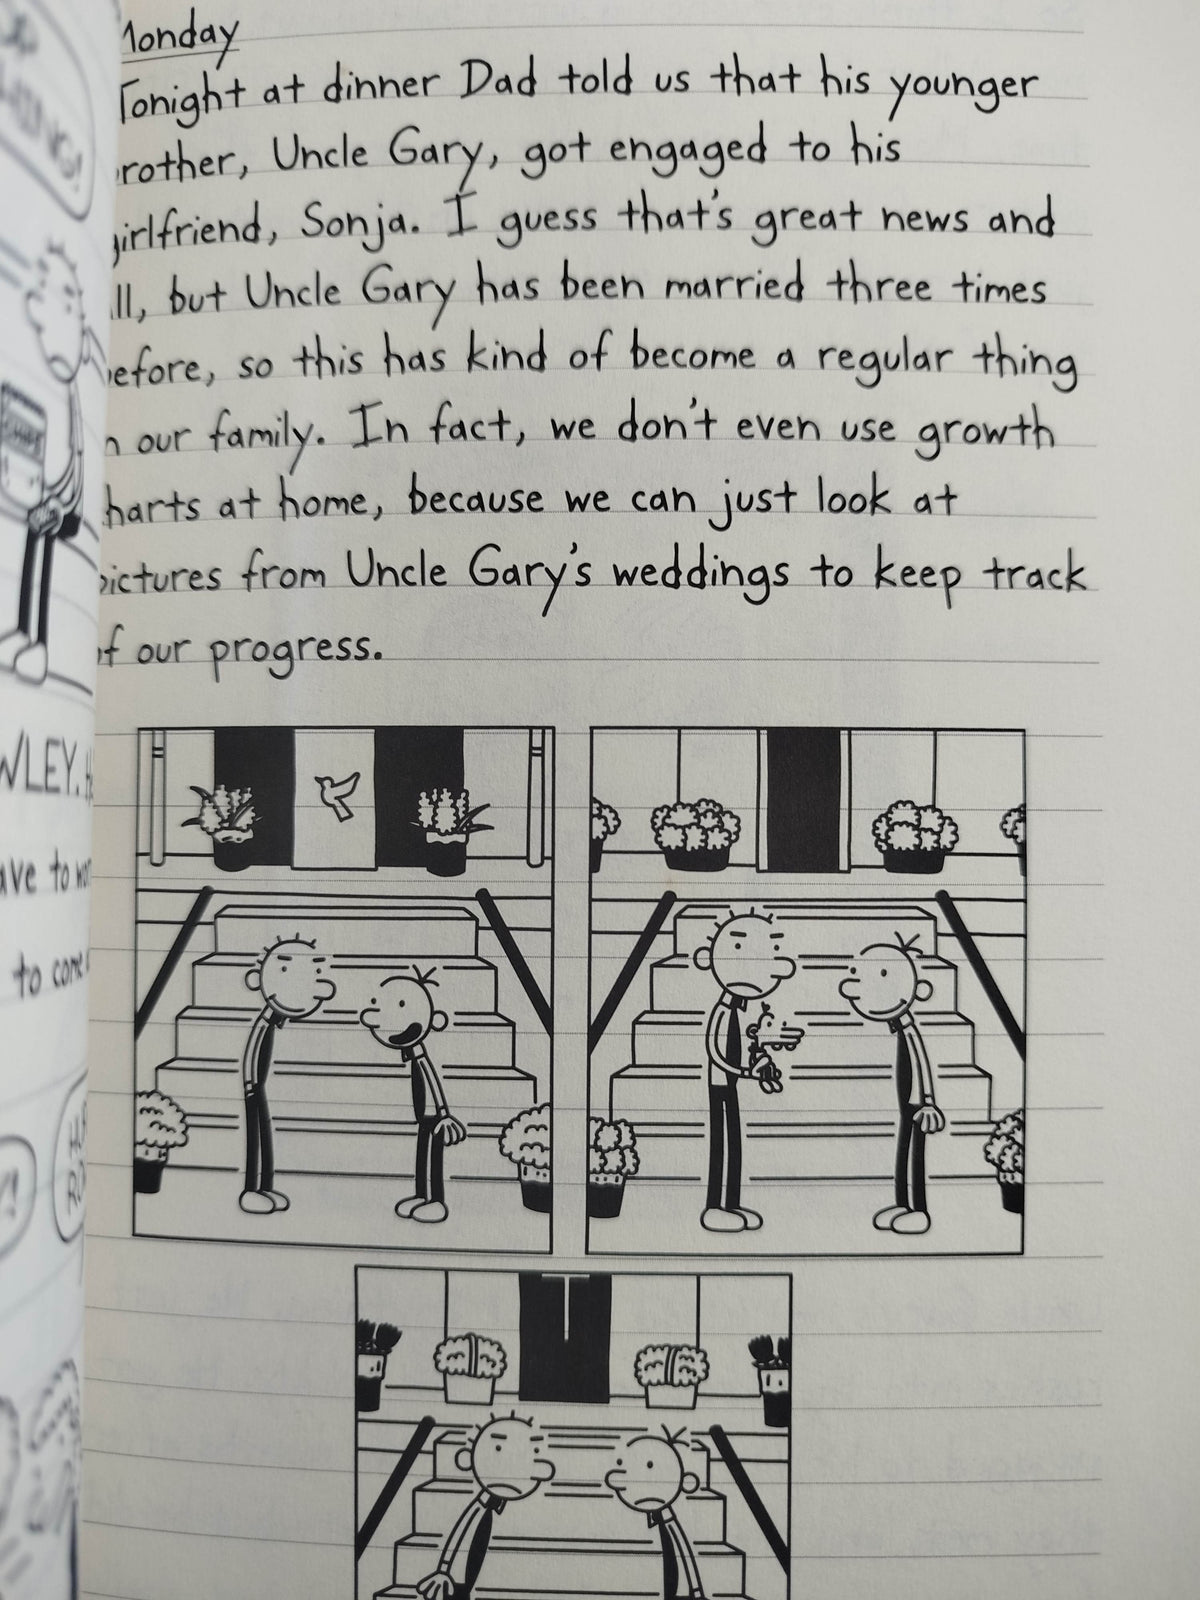 Monday
Tonight at dinner Dad told us that his younger
brother, Uncle Gary, got engaged to his
girlfriend, Sonja. I guess that's great news and
all, but Uncle Gary has been married three times
before, so this has kind of become a regular thing
in our family. In fact, we don't even use growth
charts at home, because we can just look at
pictures from Uncle Gary's weddings to keep track
of our progress.
to come